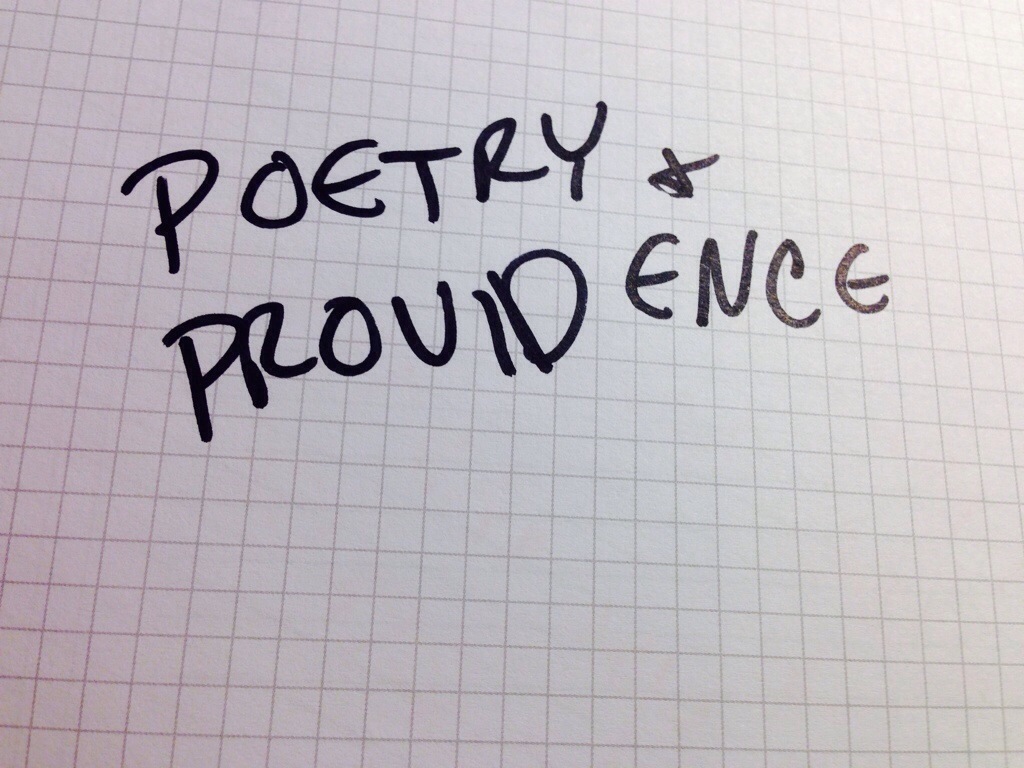 POETRY &
PROVIDENCE